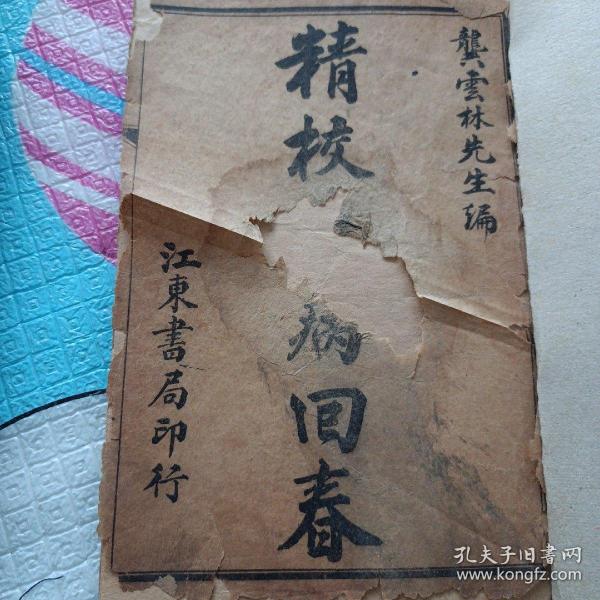 龔雲林先生編
精校 病回春
江東書局印行
孔夫子旧书网
www.kongfz.com